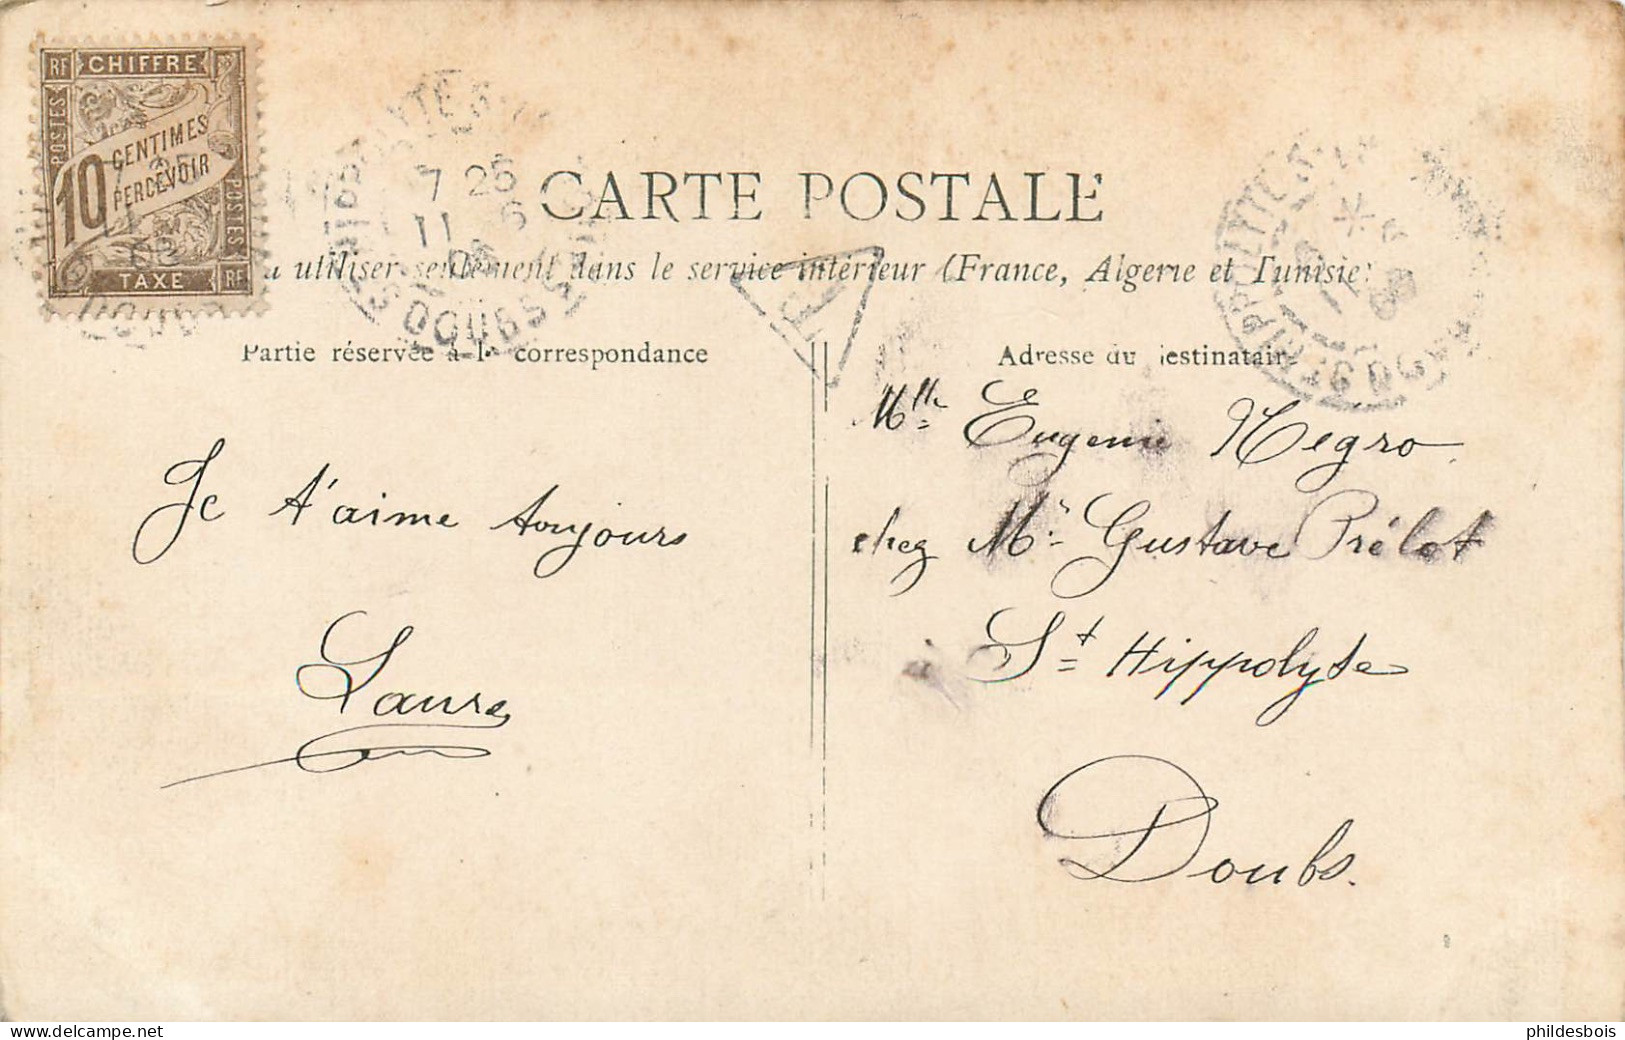 RF CHIFFRE
POSTES
10 CENTIMES
A
PERCEVOIR
POSTES
TAXE RF
7 25
11 6
DOUBS
CARTE POSTALE
utiliser seulement dans le service intérieur (France, Algerie et Tunisie)
T
Partie réservée à la correspondance
Adresse du destinataire
Je t'aime toujours
Laure
Mlle Eugenie Negro
chez Mr Gustave Prélot
St Hippolyte
Doubs.
delcampe.net
phildesbois